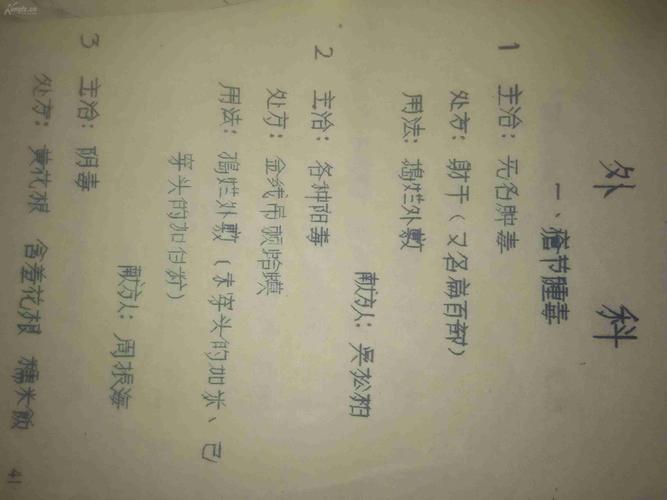 外 科
一、瘡节腫毒
1 主治：无名肿毒
处方：射干（又名扁百部）
用法：捣烂外敷
献方人：吴松柏
2 主治：各种阳毒
处方：金线吊蛤蟆
用法：捣烂外敷（未穿头的加米、已
穿头的加白糖）
献方人：周振海
3 主治：阴毒
处方：黄花根 含羞花根 糯米飯
41